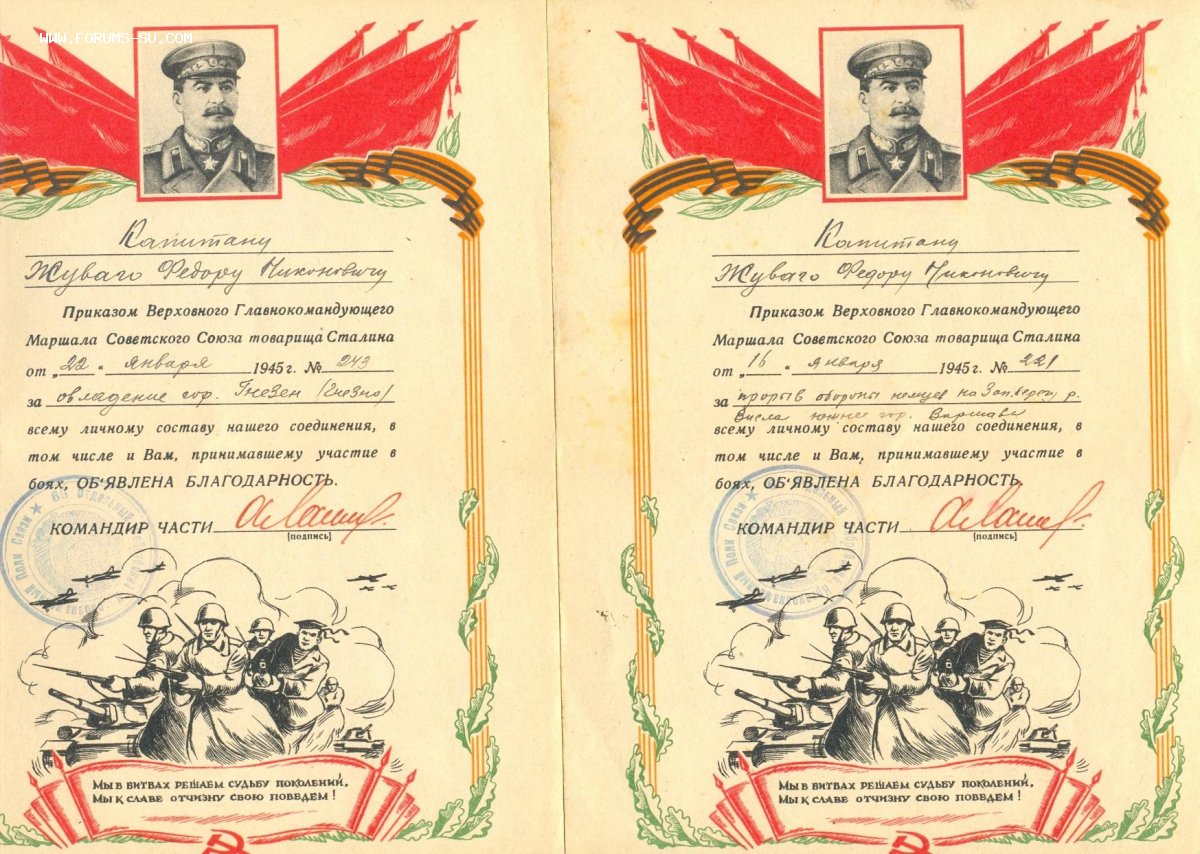 www.forums-su.com
Капитану
Жуваго Федору Никоновичу
Приказом Верховного Главнокомандующего
Маршала Советского Союза товарища Сталина
от „22 " января 1945 г. № 243
за овладение гор. Гнезен (Гнезно)
всему личному составу нашего соединения, в
том числе и Вам, принимавшему участие в
боях, ОБ'ЯВЛЕНА БЛАГОДАРНОСТЬ.
КОМАНДИР ЧАСТИ
[подпись]
65 Отдельный
Полк Связи
МЫ В БИТВАХ РЕШАЕМ СУДЬБУ ПОКОЛЕНИЙ,
МЫ К СЛАВЕ ОТЧИЗНУ СВОЮ ПОВЕДЕМ !
Капитану
Жуваго Федору Никоновичу
Приказом Верховного Главнокомандующего
Маршала Советского Союза товарища Сталина
от „16 " января 1945 г. № 221
за прорыв обороны немцев на Зап. берегу р.
Висла южнее гор. Варшава
всему личному составу нашего соединения, в
том числе и Вам, принимавшему участие в
боях, ОБ'ЯВЛЕНА БЛАГОДАРНОСТЬ.
КОМАНДИР ЧАСТИ
[подпись]
Отдельный
Полк Связи
МЫ В БИТВАХ РЕШАЕМ СУДЬБУ ПОКОЛЕНИЙ,
МЫ К СЛАВЕ ОТЧИЗНУ СВОЮ ПОВЕДЕМ !